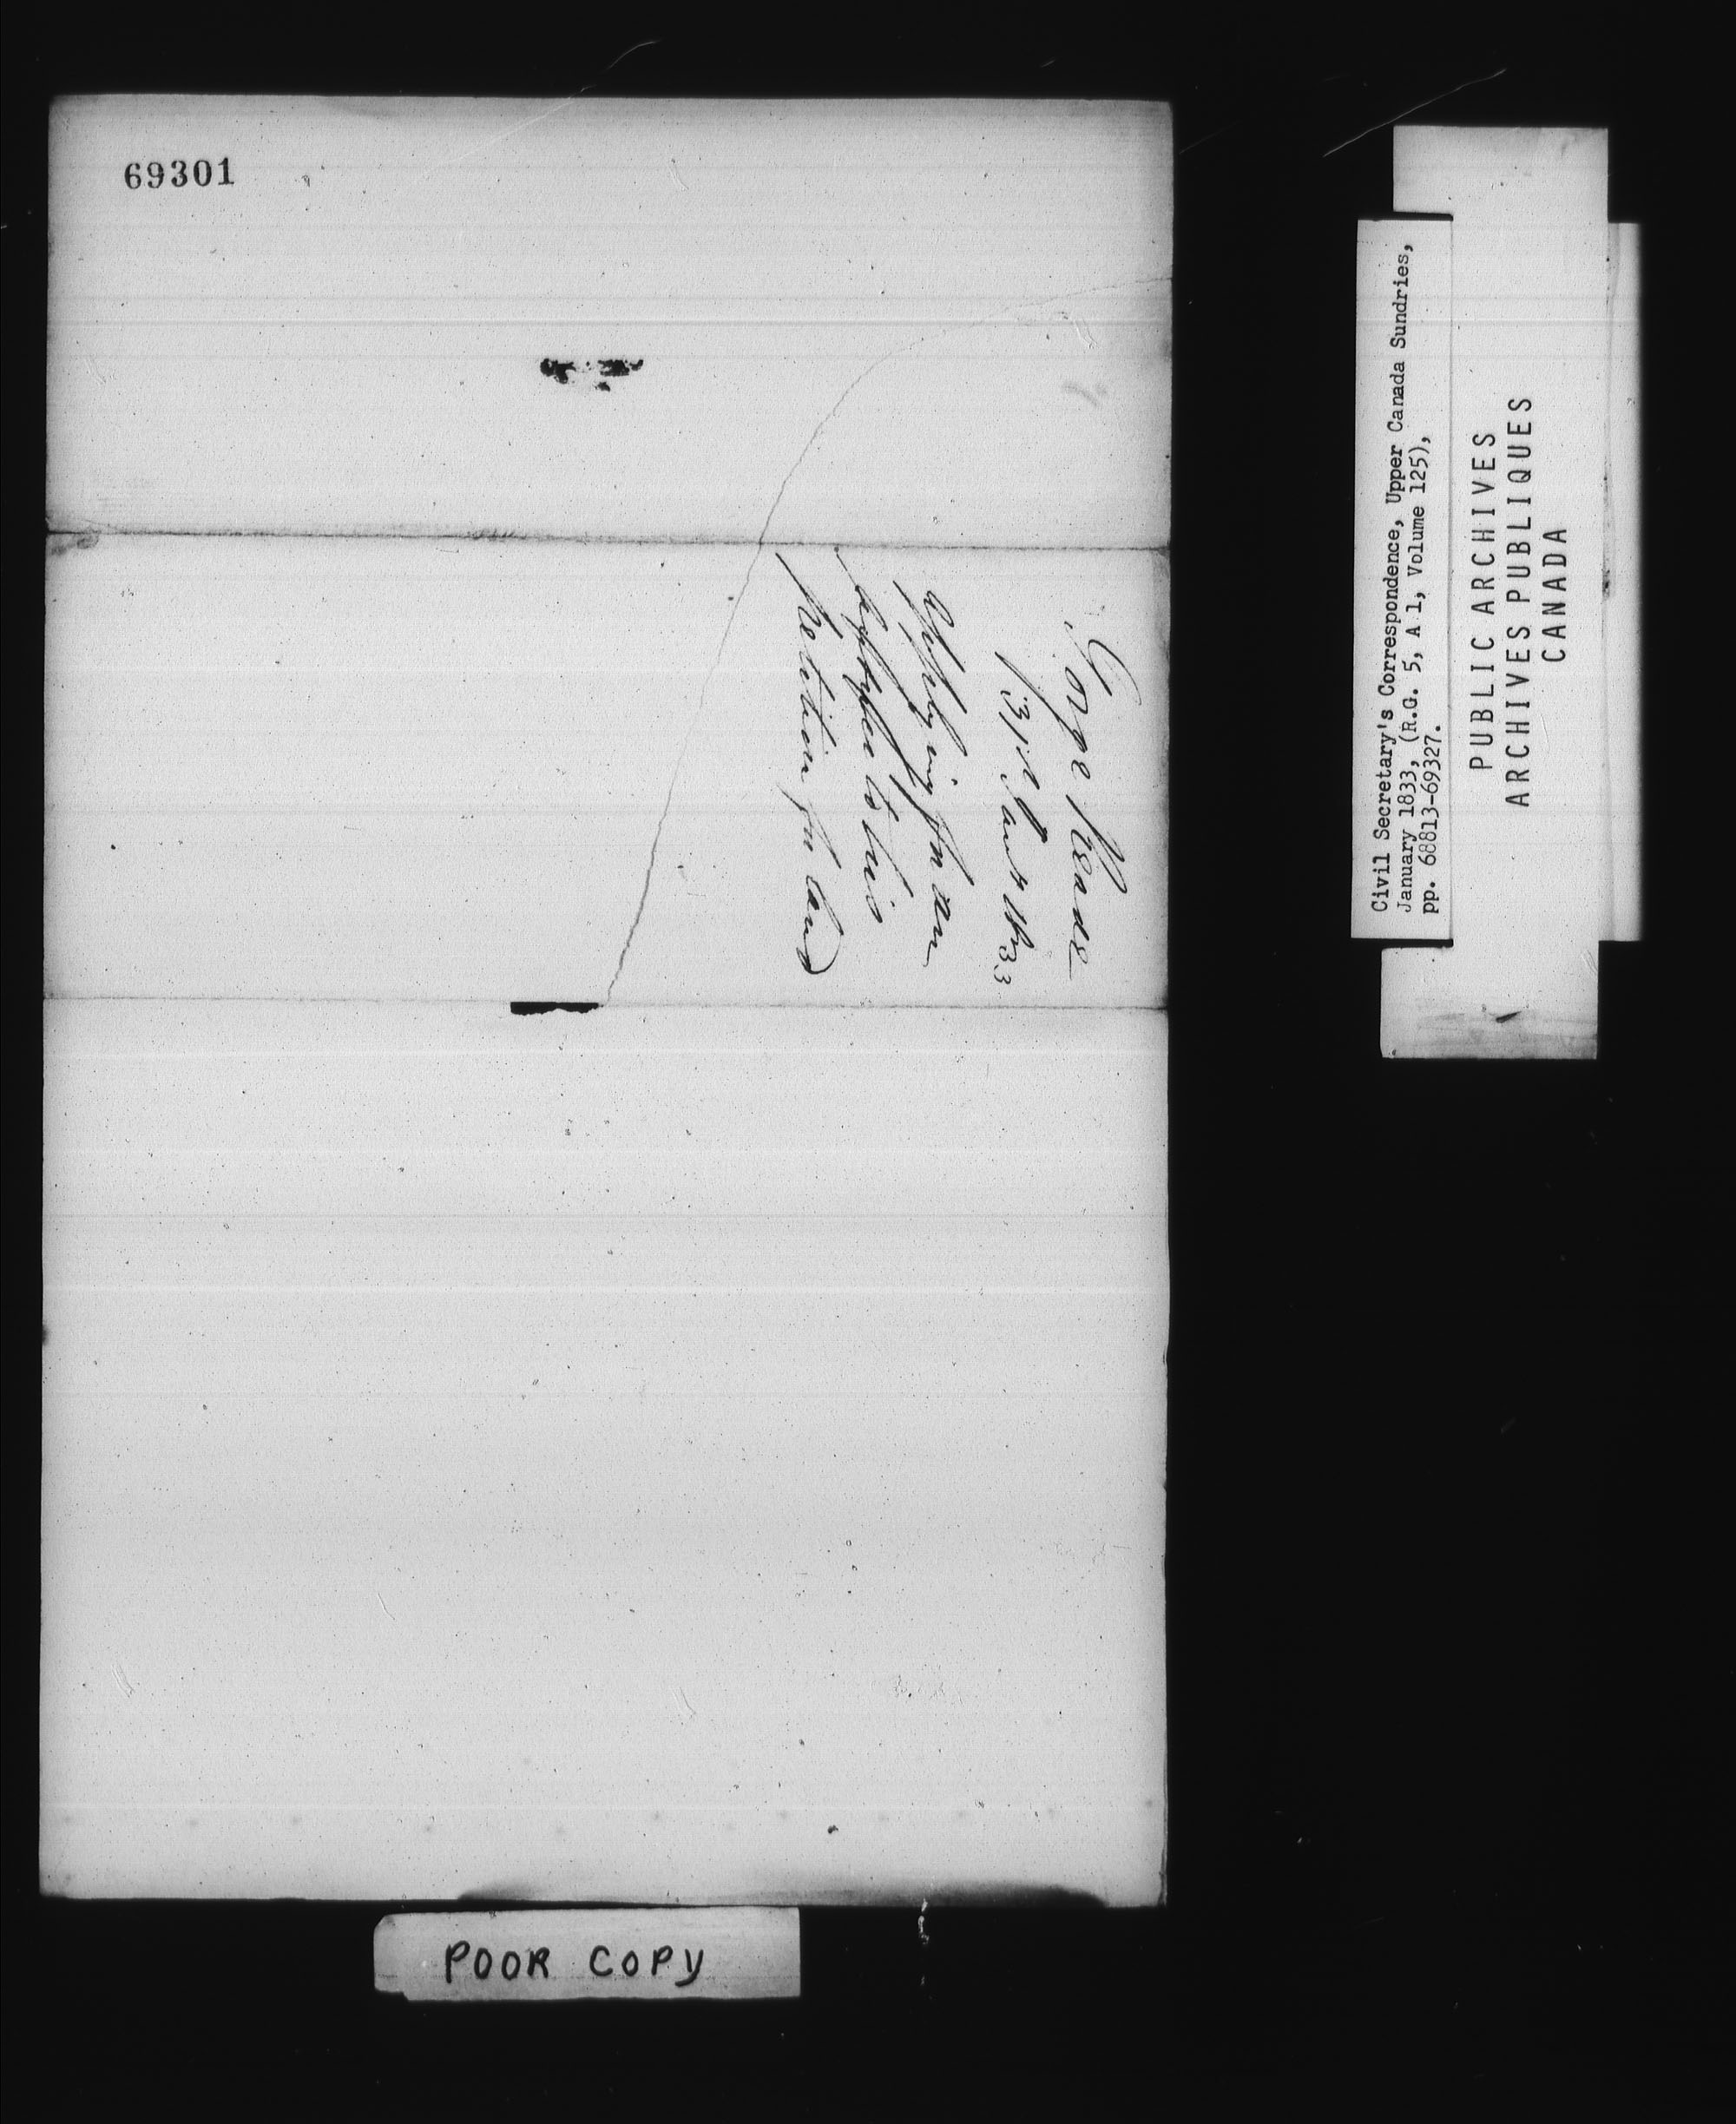 69301
George Reade
31st Jany 1833
applying for an
answer to his
Petition for land
POOR COPY
Civil Secretary's Correspondence, Upper Canada Sundries,
January 1833, (R.G. 5, A 1, Volume 125),
pp. 68813-69327.
PUBLIC ARCHIVES
ARCHIVES PUBLIQUES
CANADA